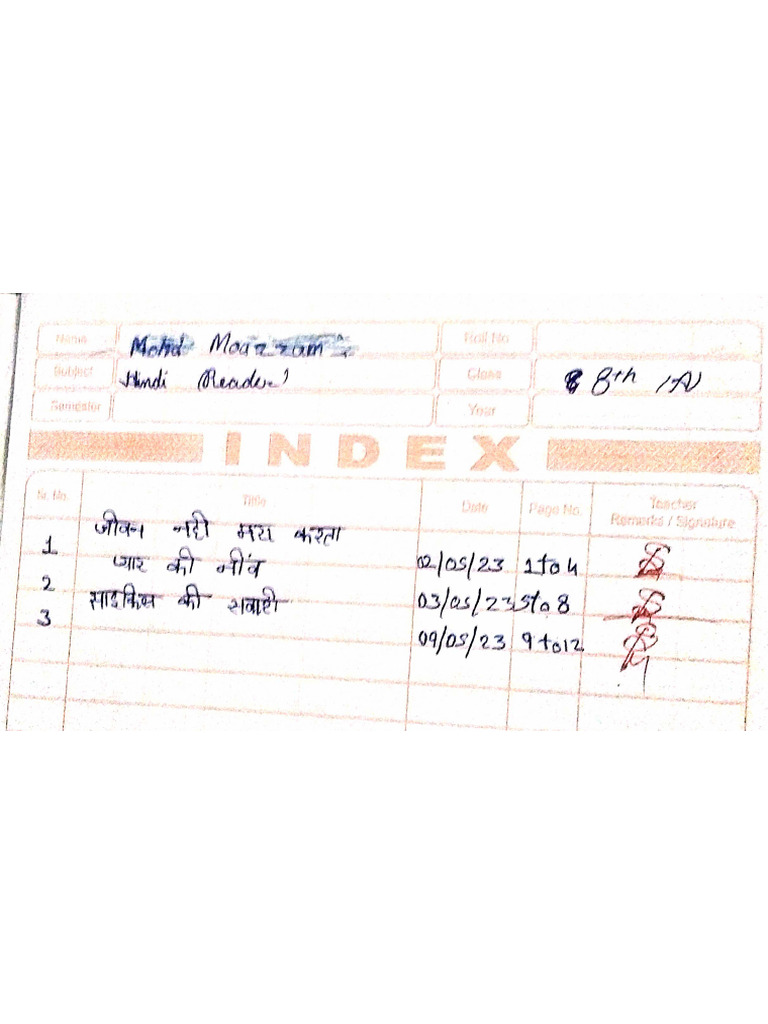 Name Mohd Moazzam Roll No.
Subject Hindi (Reader) Class 8th (A)
Semester Year
INDEX
Sr. No. Title Date Page No. Teacher Remarks / Signature
1 जीवन नही मरा करता 02/05/23 1 to 4
2 प्यार की नींव 03/05/23 5 to 8
3 साइकिल की सवारी 09/05/23 9 to 12